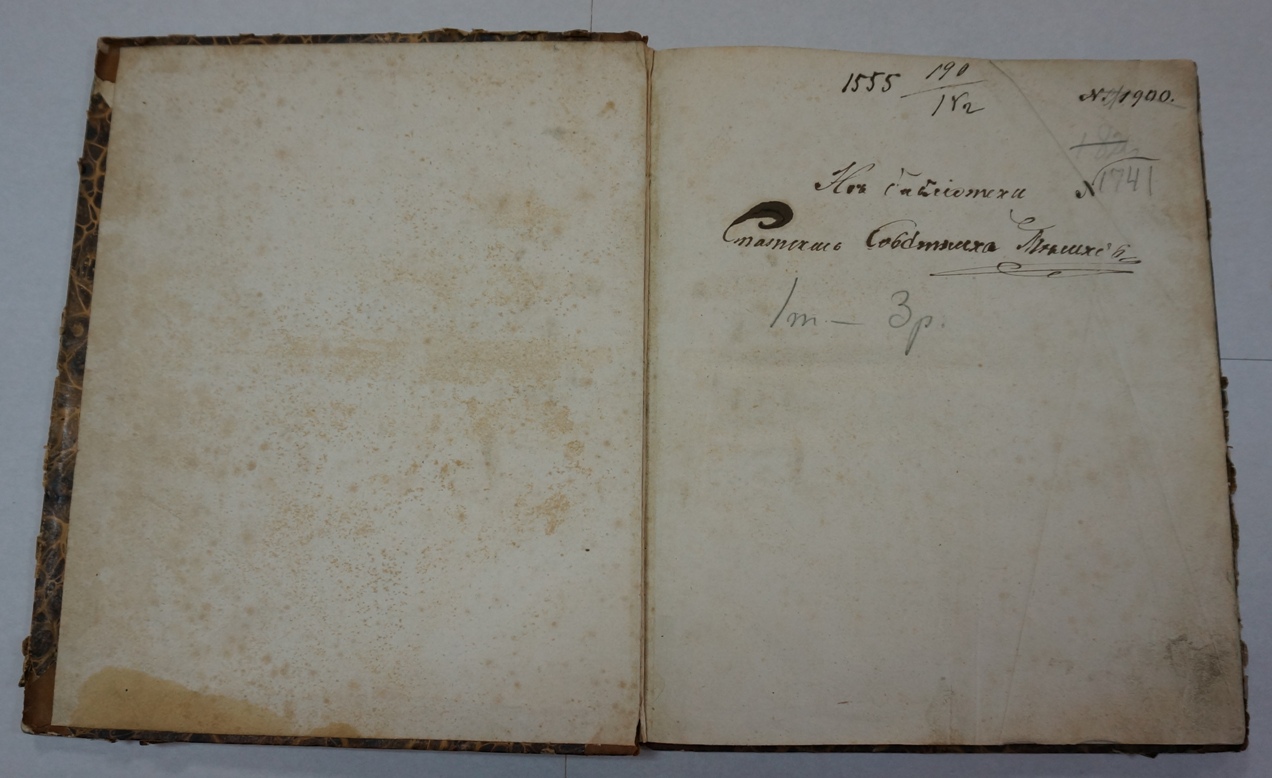 1555 190/182 N 1900.
Изъ библіотеки N 1741
Статскаго Совѣтника
1 т — 3 р.